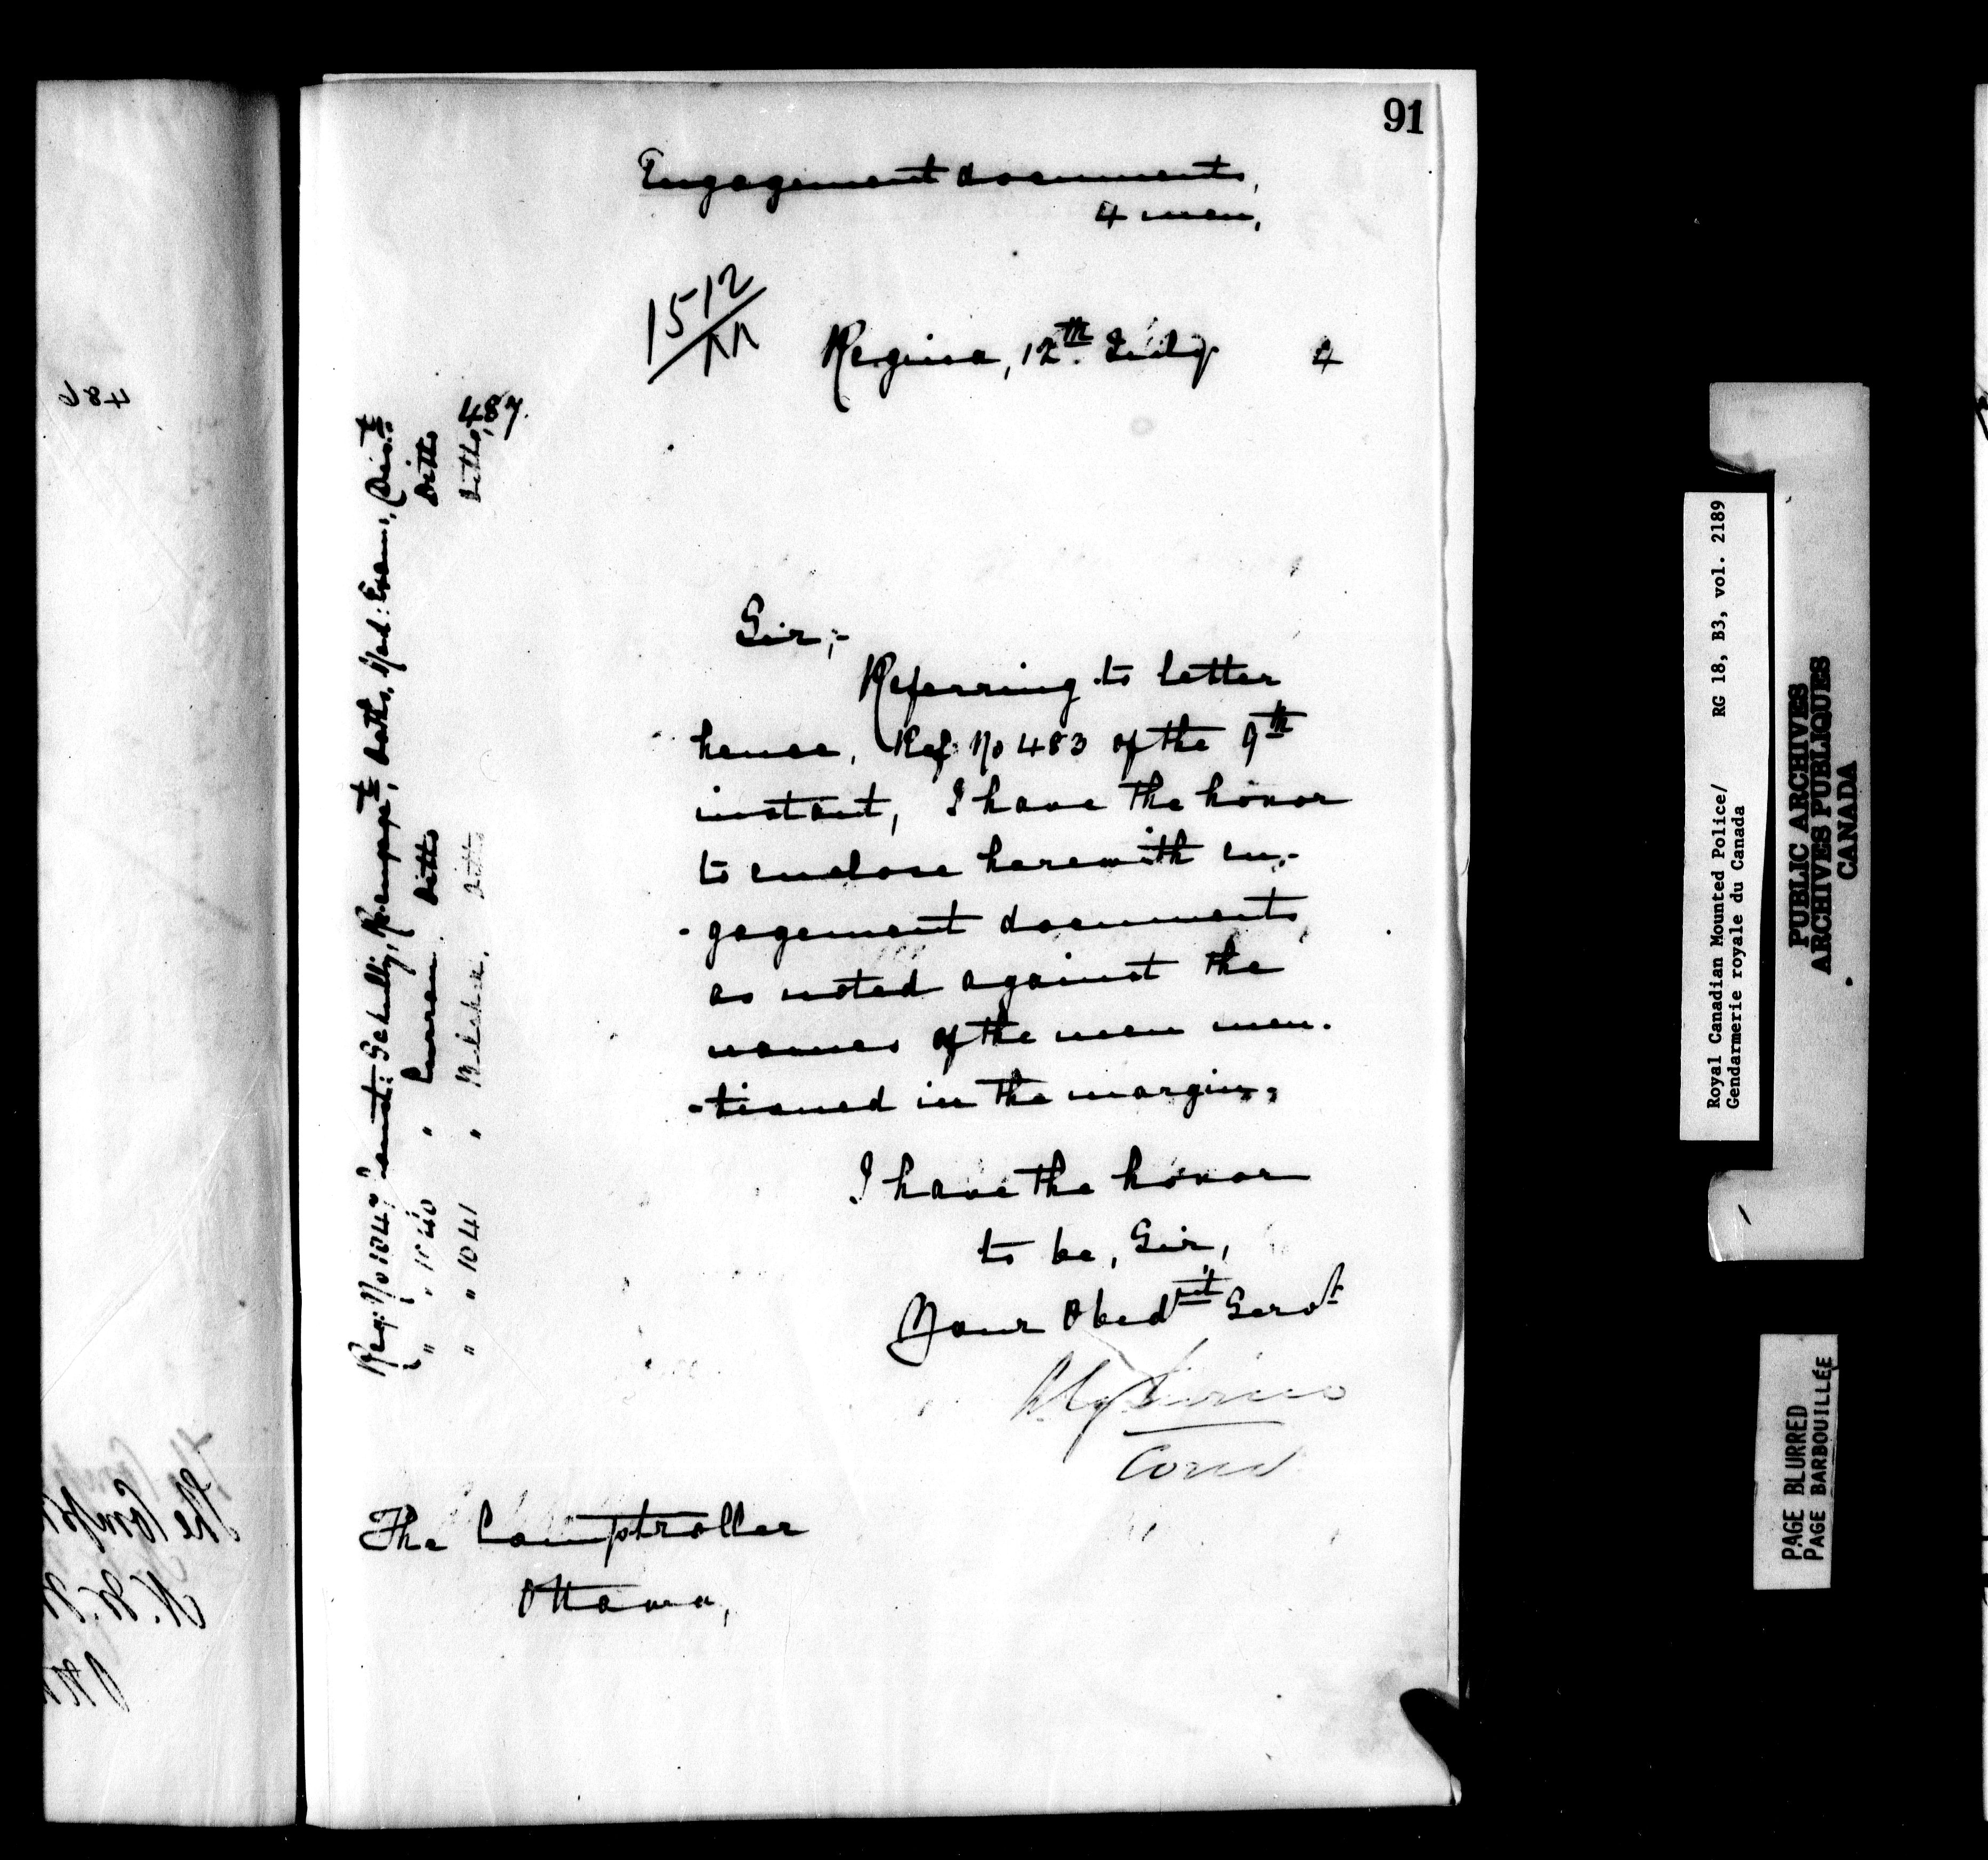 91
Engagement documents,
4 men,
1512
Regina, 12th July 4
487.
Sir,-
Referring to letter
hence, Ref: No 483 of the 9th
instant, I have the honor
to enclose herewith en,-
-gagement documents,
as noted against the
names of the men men-
-tioned in the margin:
I have the honor
to be, Sir,
Your Obedient Servt
Com
The Comptroller
Ottawa,
Reg: No 1047 Const: Schully, Rengagt, Oath, Med: Exam:, Disct
" " 1040 " Curran Ditto Ditto
" " 1041 " Belcher. Ditto Ditto
486
The Comptr
N. W. M
Otta
Royal Canadian Mounted Police/ RG 18, B3, vol. 2189
Gendarmerie royale du Canada
PUBLIC ARCHIVES
ARCHIVES PUBLIQUES
CANADA
PAGE BLURRED
PAGE BARBOUILLÉE